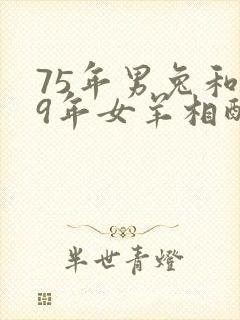 75年男兔和
9年女羊相配
半世青燈